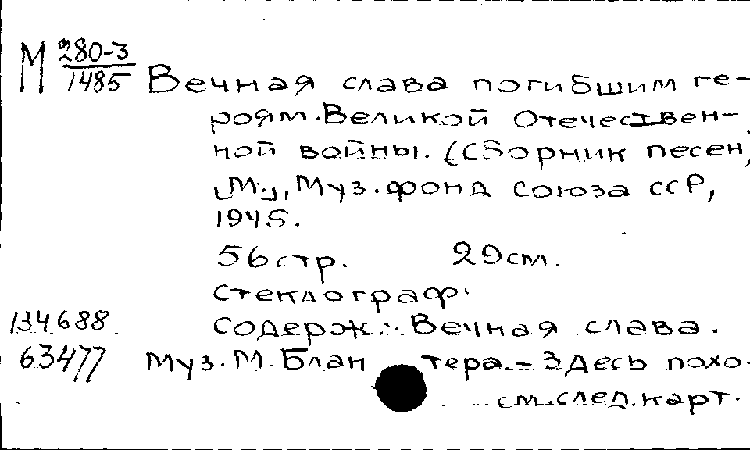 М 280-3
1485 Вечная слава погибшим ге-
роям.Великой Отечествен-
ной войны. (Сборник песен,
М., Муз.фонд Союза ССР,
1945.
56стр. 29см.
Стеклограф.
134688 Содерж.: Вечная слава.
63477 Муз.М.Блантера.-Здесь похо-
см.след.карт.